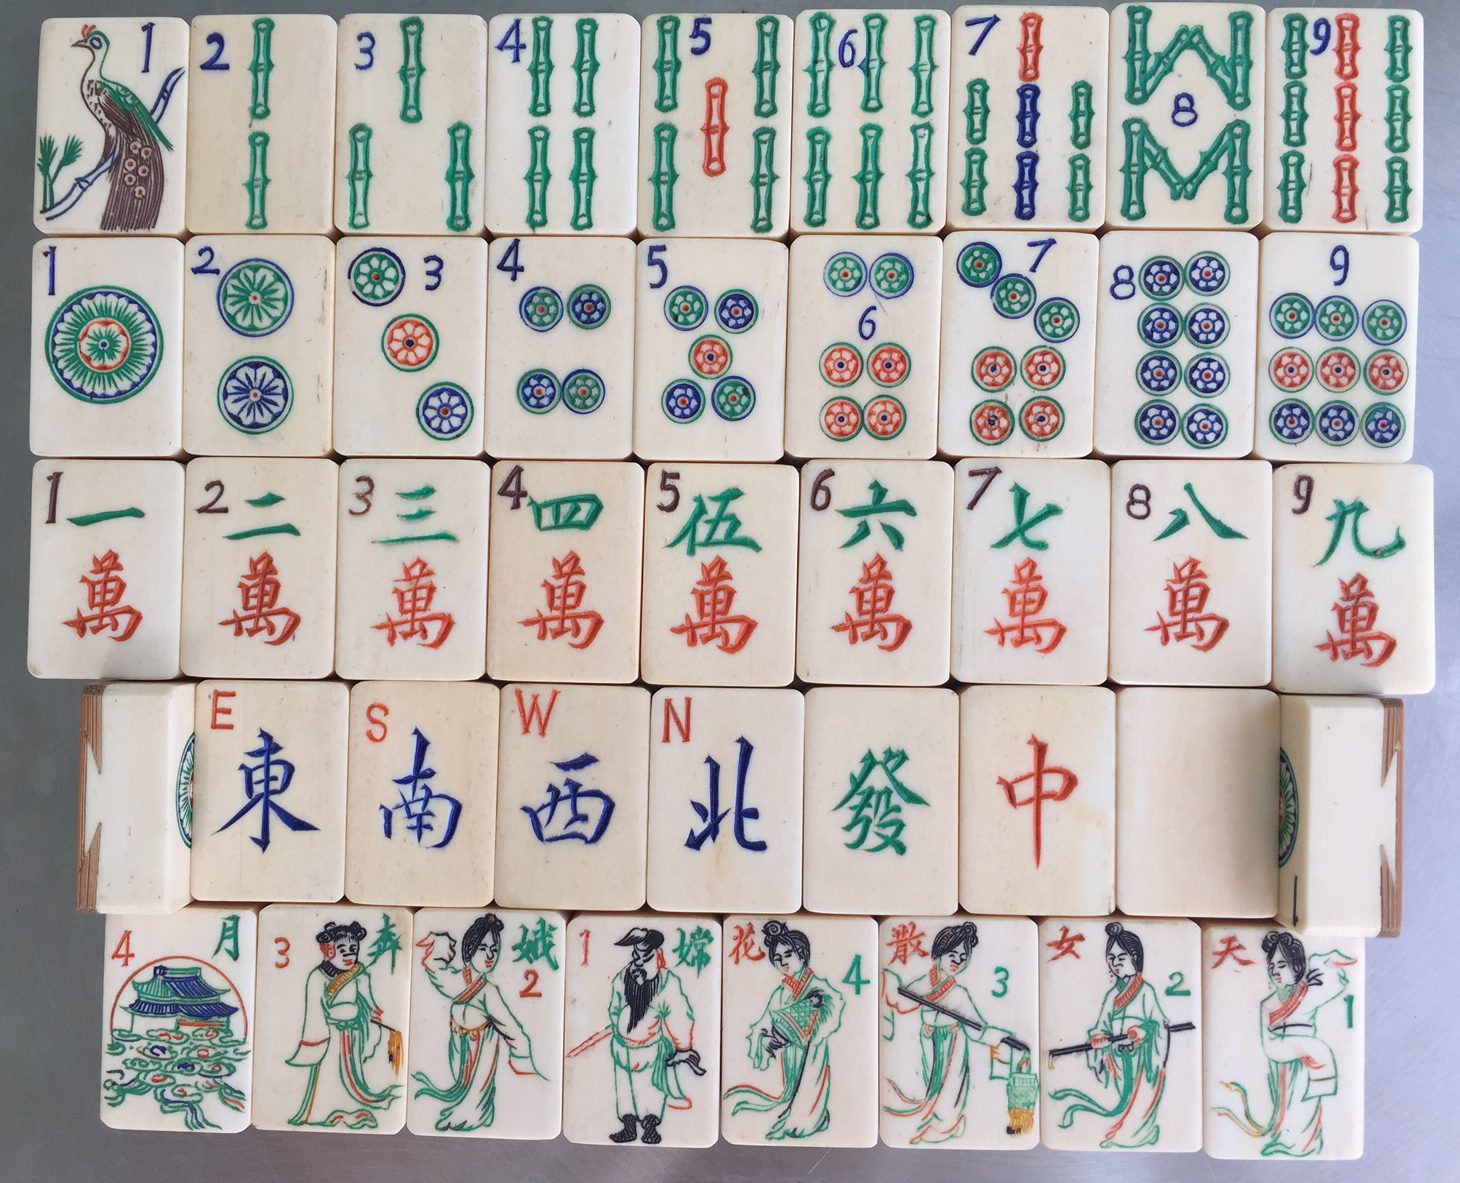 1 2 3 4 5 6 7 8 9
1 2 3 4 5 6 7 8 9
1 2 3 4 5 6 7 8 9
一 二 三 四 伍 六 七 八 九
萬 萬 萬 萬 萬 萬 萬 萬 萬
E S W N
東 南 西 北 發 中
1
4 月 3 奔 娥 2 1 嫦 花 4 散 3 女 2 天 1